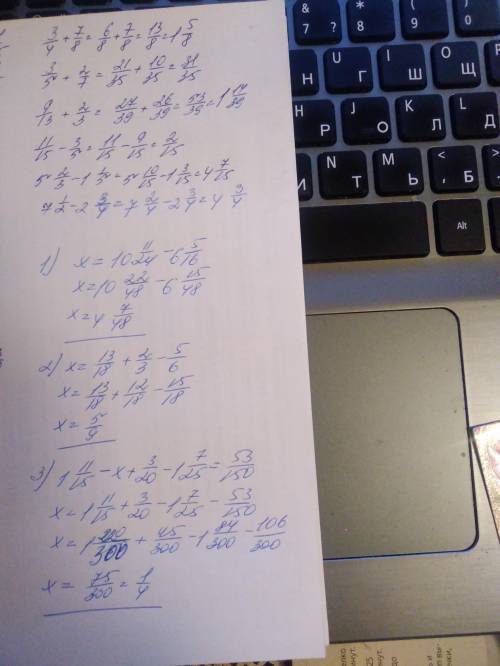 3/4 + 7/8 = 6/8 + 7/8 = 13/8 = 1 5/8
3/5 + 2/7 = 21/35 + 10/35 = 31/35
9/13 + 2/3 = 27/39 + 26/39 = 53/39 = 1 14/39
11/15 - 3/5 = 11/15 - 9/15 = 2/15
5 2/3 - 1 1/5 = 5 10/15 - 1 3/15 = 4 7/15
7 1/2 - 2 3/4 = 7 2/4 - 2 3/4 = 4 3/4
1) x = 10 11/24 - 6 5/16
x = 10 22/48 - 6 15/48
x = 4 7/48
2) x = 13/18 + 2/3 - 5/6
x = 13/18 + 12/18 - 15/18
x = 5/9
3) 1 11/15 - x + 3/20 - 1 7/25 = 53/150
x = 1 11/15 + 3/20 - 1 7/25 - 53/150
x = 1 220/300 + 45/300 - 1 84/300 - 106/300
x = 75/300 = 1/4
&
7 ?
*
8
(
9
Н
Г
Ш
Щ
Р
О
Л
Д
Т
Ь
Б
<
Alt